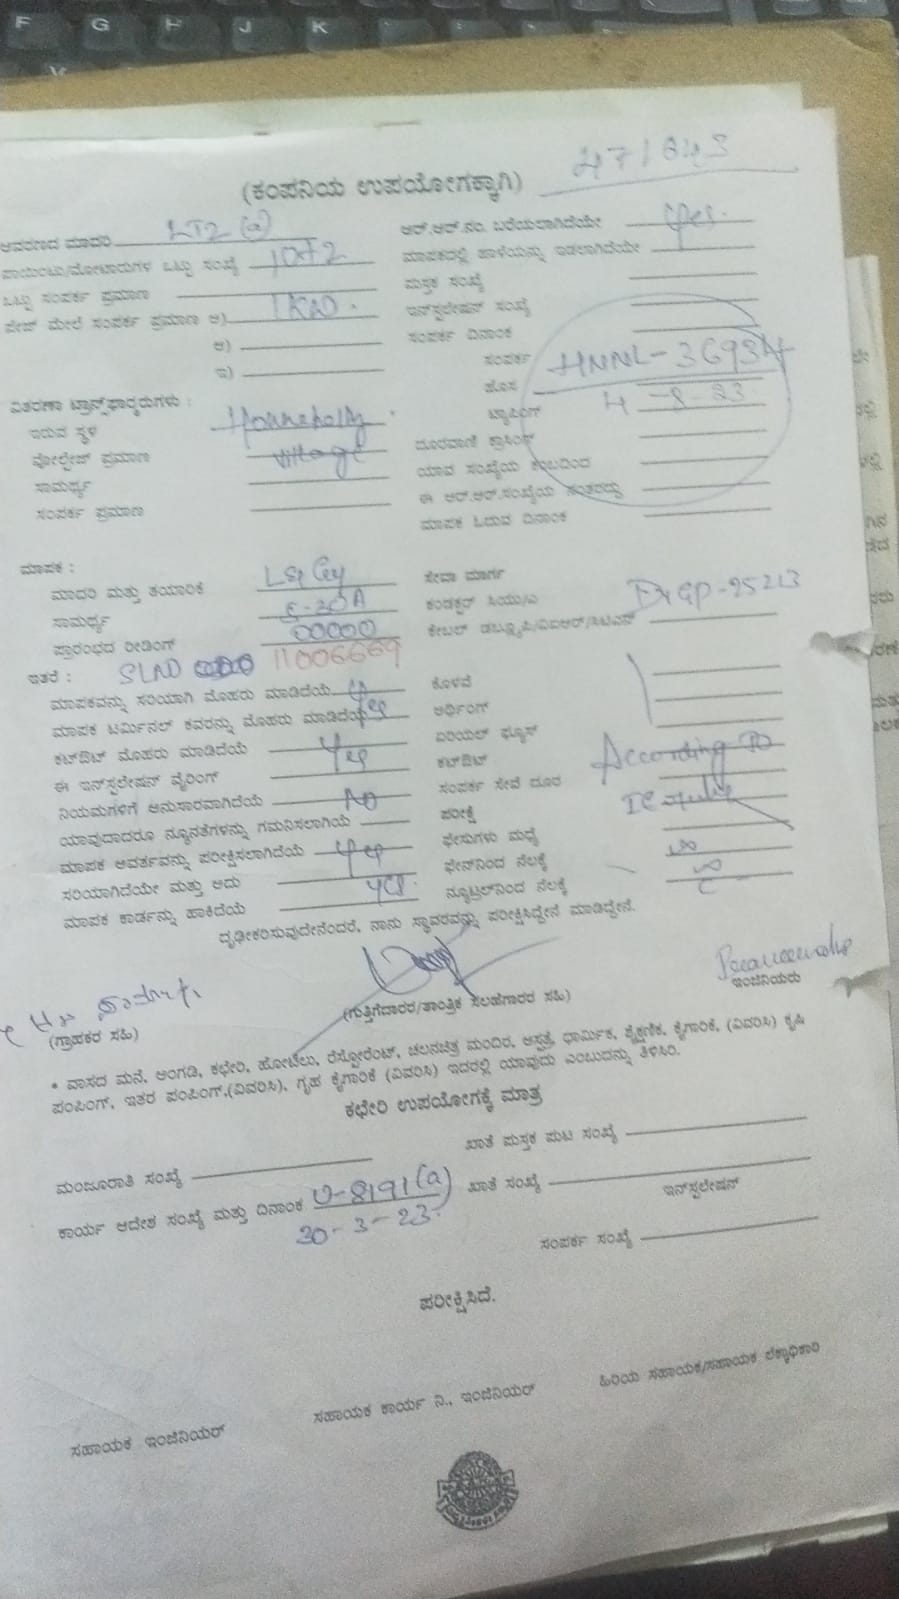 F G H J K
(ಕಂಪನಿಯ ಉಪಯೋಗಕ್ಕಾಗಿ) 471643
ಆವರಣದ ಮಾದರಿ LT2 (a)
ಪಾಯಿಂಟು/ಮೋಟಾರುಗಳ ಒಟ್ಟು ಸಂಖ್ಯೆ 10+2
ಒಟ್ಟು ಸಂಪರ್ಕ ಪ್ರಮಾಣ
ಪೇಜ್ ಮೇಲೆ ಸಂಪರ್ಕ ಪ್ರಮಾಣ ಅ) 1KW.
ಆ)
ಇ)
ವಿತರಣಾ ಟ್ರಾನ್ಸ್‌ಫಾರ್ಮರುಗಳು :
ಇರುವ ಸ್ಥಳ Honnehally
ವೋಲ್ಟೇಜ್ ಪ್ರಮಾಣ village
ಸಾಮರ್ಥ್ಯ
ಸಂಪರ್ಕ ಪ್ರಮಾಣ
ಆರ್.ಆರ್.ನಂ. ಬರೆಯಲಾಗಿದೆಯೇ yes.
ಮಾಪಕದಲ್ಲಿ ಹಾಳೆಯನ್ನು ಇಡಲಾಗಿದೆಯೇ
ಪುಸ್ತಕ ಸಂಖ್ಯೆ
ಇನ್‌ಸ್ಟಲೇಷನ್ ಸಂಖ್ಯೆ
ಸಂಪರ್ಕ ದಿನಾಂಕ
ಸಂಪರ್ಕ HNNL-36934
ಹೊಸ
ಟ್ಯಾಪಿಂಗ್ 4-8-23
ದೂರವಾಣಿ ಕ್ರಾಸಿಂಗ್
ಯಾವ ಸಂಖ್ಯೆಯ ಕಂಬದಿಂದ
ಈ ಆರ್.ಆರ್.ಸಂಖ್ಯೆಯ ನಂತರದ್ದು
ಮಾಪಕ ಓದುವ ದಿನಾಂಕ
ಮಾಪಕ :
ಮಾದರಿ ಮತ್ತು ತಯಾರಿಕೆ
ಸಾಮರ್ಥ್ಯ 5-20A
ಪ್ರಾರಂಭದ ರೀಡಿಂಗ್ 00000
ಇತರೆ : SLNO 11006669
ಮಾಪಕವನ್ನು ಸರಿಯಾಗಿ ಮೊಹರು ಮಾಡಿದೆಯೆ
ಮಾಪಕ ಟರ್ಮಿನಲ್ ಕವರನ್ನು ಮೊಹರು ಮಾಡಿದೆಯೆ yes
ಕಟ್‌ಔಟ್ ಮೊಹರು ಮಾಡಿದೆಯೆ yes
ಈ ಇನ್‌ಸ್ಟಲೇಷನ್ ವೈರಿಂಗ್
ನಿಯಮಗಳಿಗೆ ಅನುಸಾರವಾಗಿದೆಯೆ NO
ಯಾವುದಾದರೂ ನ್ಯೂನತೆಗಳನ್ನು ಗಮನಿಸಲಾಗಿಯೆ
ಮಾಪಕ ಆವರ್ತವನ್ನು ಪರೀಕ್ಷಿಸಲಾಗಿದೆಯೆ yes
ಸರಿಯಾಗಿದೆಯೇ ಮತ್ತು ಅದು
ಮಾಪಕ ಕಾರ್ಡನ್ನು ಹಾಕಿದೆಯೆ yes.
ಸೇವಾ ಮಾರ್ಗ
ಕಂಡಕ್ಟರ್ ಸಿಯು/ಎ
ಕೇಬಲ್ ಡಬ್ಲ್ಯೂಪಿ/ವಿಐಆರ್/ಸಿಟಿಎಸ್
ಕೊಳವೆ
ಅರ್ಥಿಂಗ್
ಏರಿಯಲ್ ಫ್ಯೂಸ್
ಕಟ್‌ಔಟ್ According TO
ಸಂಪರ್ಕ ಸೇವೆ ದೂರ
ಪರೀಕ್ಷೆ
ಫೇಸುಗಳು ಮಧ್ಯೆ ∞
ಫೇಸ್‌ನಿಂದ ನೆಲಕ್ಕೆ ∞
ನ್ಯೂಟ್ರಲ್‌ನಿಂದ ನೆಲಕ್ಕೆ
ದೃಢೀಕರಿಸುವುದೇನೆಂದರೆ, ನಾನು ಸ್ಥಾವರವನ್ನು ಪರೀಕ್ಷಿಸಿದ್ದೇನೆ ಮಾಡಿದ್ದೇನೆ.
(ಗ್ರಾಹಕರ ಸಹಿ) (ಗುತ್ತಿಗೆದಾರರ/ತಾಂತ್ರಿಕ ಸಲಹೆಗಾರರ ಸಹಿ) ಇಂಜಿನಿಯರು
• ವಾಸದ ಮನೆ, ಅಂಗಡಿ, ಕಛೇರಿ, ಹೋಟೆಲು, ರೆಸ್ಟೋರೆಂಟ್, ಚಲನಚಿತ್ರ ಮಂದಿರ, ಆಸ್ಪತ್ರೆ, ಧಾರ್ಮಿಕ, ಶೈಕ್ಷಣಿಕ, ಕೈಗಾರಿಕೆ, (ವಿವರಿಸಿ) ಕೃಷಿ
ಪಂಪಿಂಗ್, ಇತರ ಪಂಪಿಂಗ್,(ವಿವರಿಸಿ), ಗೃಹ ಕೈಗಾರಿಕೆ (ವಿವರಿಸಿ) ಇದರಲ್ಲಿ ಯಾವುದು ಎಂಬುದನ್ನು ತಿಳಿಸಿರಿ.
ಕಛೇರಿ ಉಪಯೋಗಕ್ಕೆ ಮಾತ್ರ
ಮಂಜೂರಾತಿ ಸಂಖ್ಯೆ ಖಾತೆ ಪುಸ್ತಕ ಪುಟ ಸಂಖ್ಯೆ
ಕಾರ್ಯ ಆದೇಶ ಸಂಖ್ಯೆ ಮತ್ತು ದಿನಾಂಕ 0-8191(a) ಖಾತೆ ಸಂಖ್ಯೆ
30-3-23. ಇನ್‌ಸ್ಟಲೇಷನ್
ಸಂಪರ್ಕ ಸಂಖ್ಯೆ
ಪರೀಕ್ಷಿಸಿದೆ.
ಸಹಾಯಕ ಇಂಜಿನಿಯರ್ ಸಹಾಯಕ ಕಾರ್ಯ ನಿ., ಇಂಜಿನಿಯರ್ ಹಿರಿಯ ಸಹಾಯಕ/ಸಹಾಯಕ ಲೆಕ್ಕಾಧಿಕಾರಿ